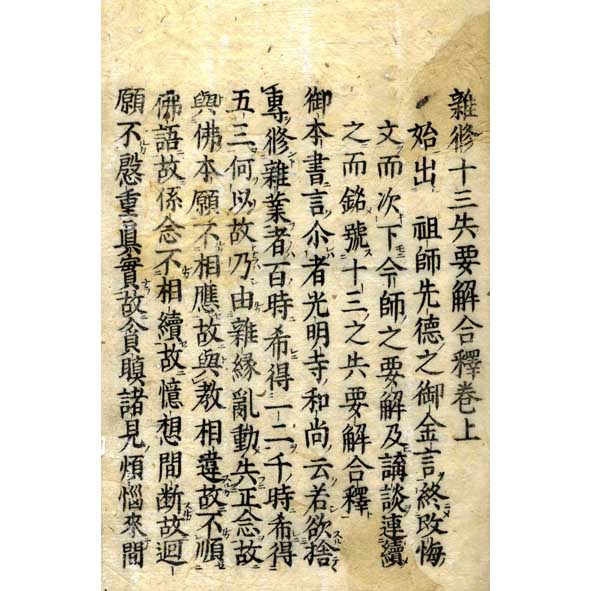 雜修十三失要解合釋卷上
始出 祖師先德之御金言終改悔
文而次下令師之要解及講談連續
之而銘號十三之失要解合釋
御本書言尒者光明寺和尚云若欲捨
專修雜業者百時希得一二千時希得
五三何以故乃由雜縁亂動失正念故
與佛本願不相應故與教相違故不順
佛語故係念不相續故憶想間断故迴
願不慇重眞實故貪瞋諸見煩惱來間